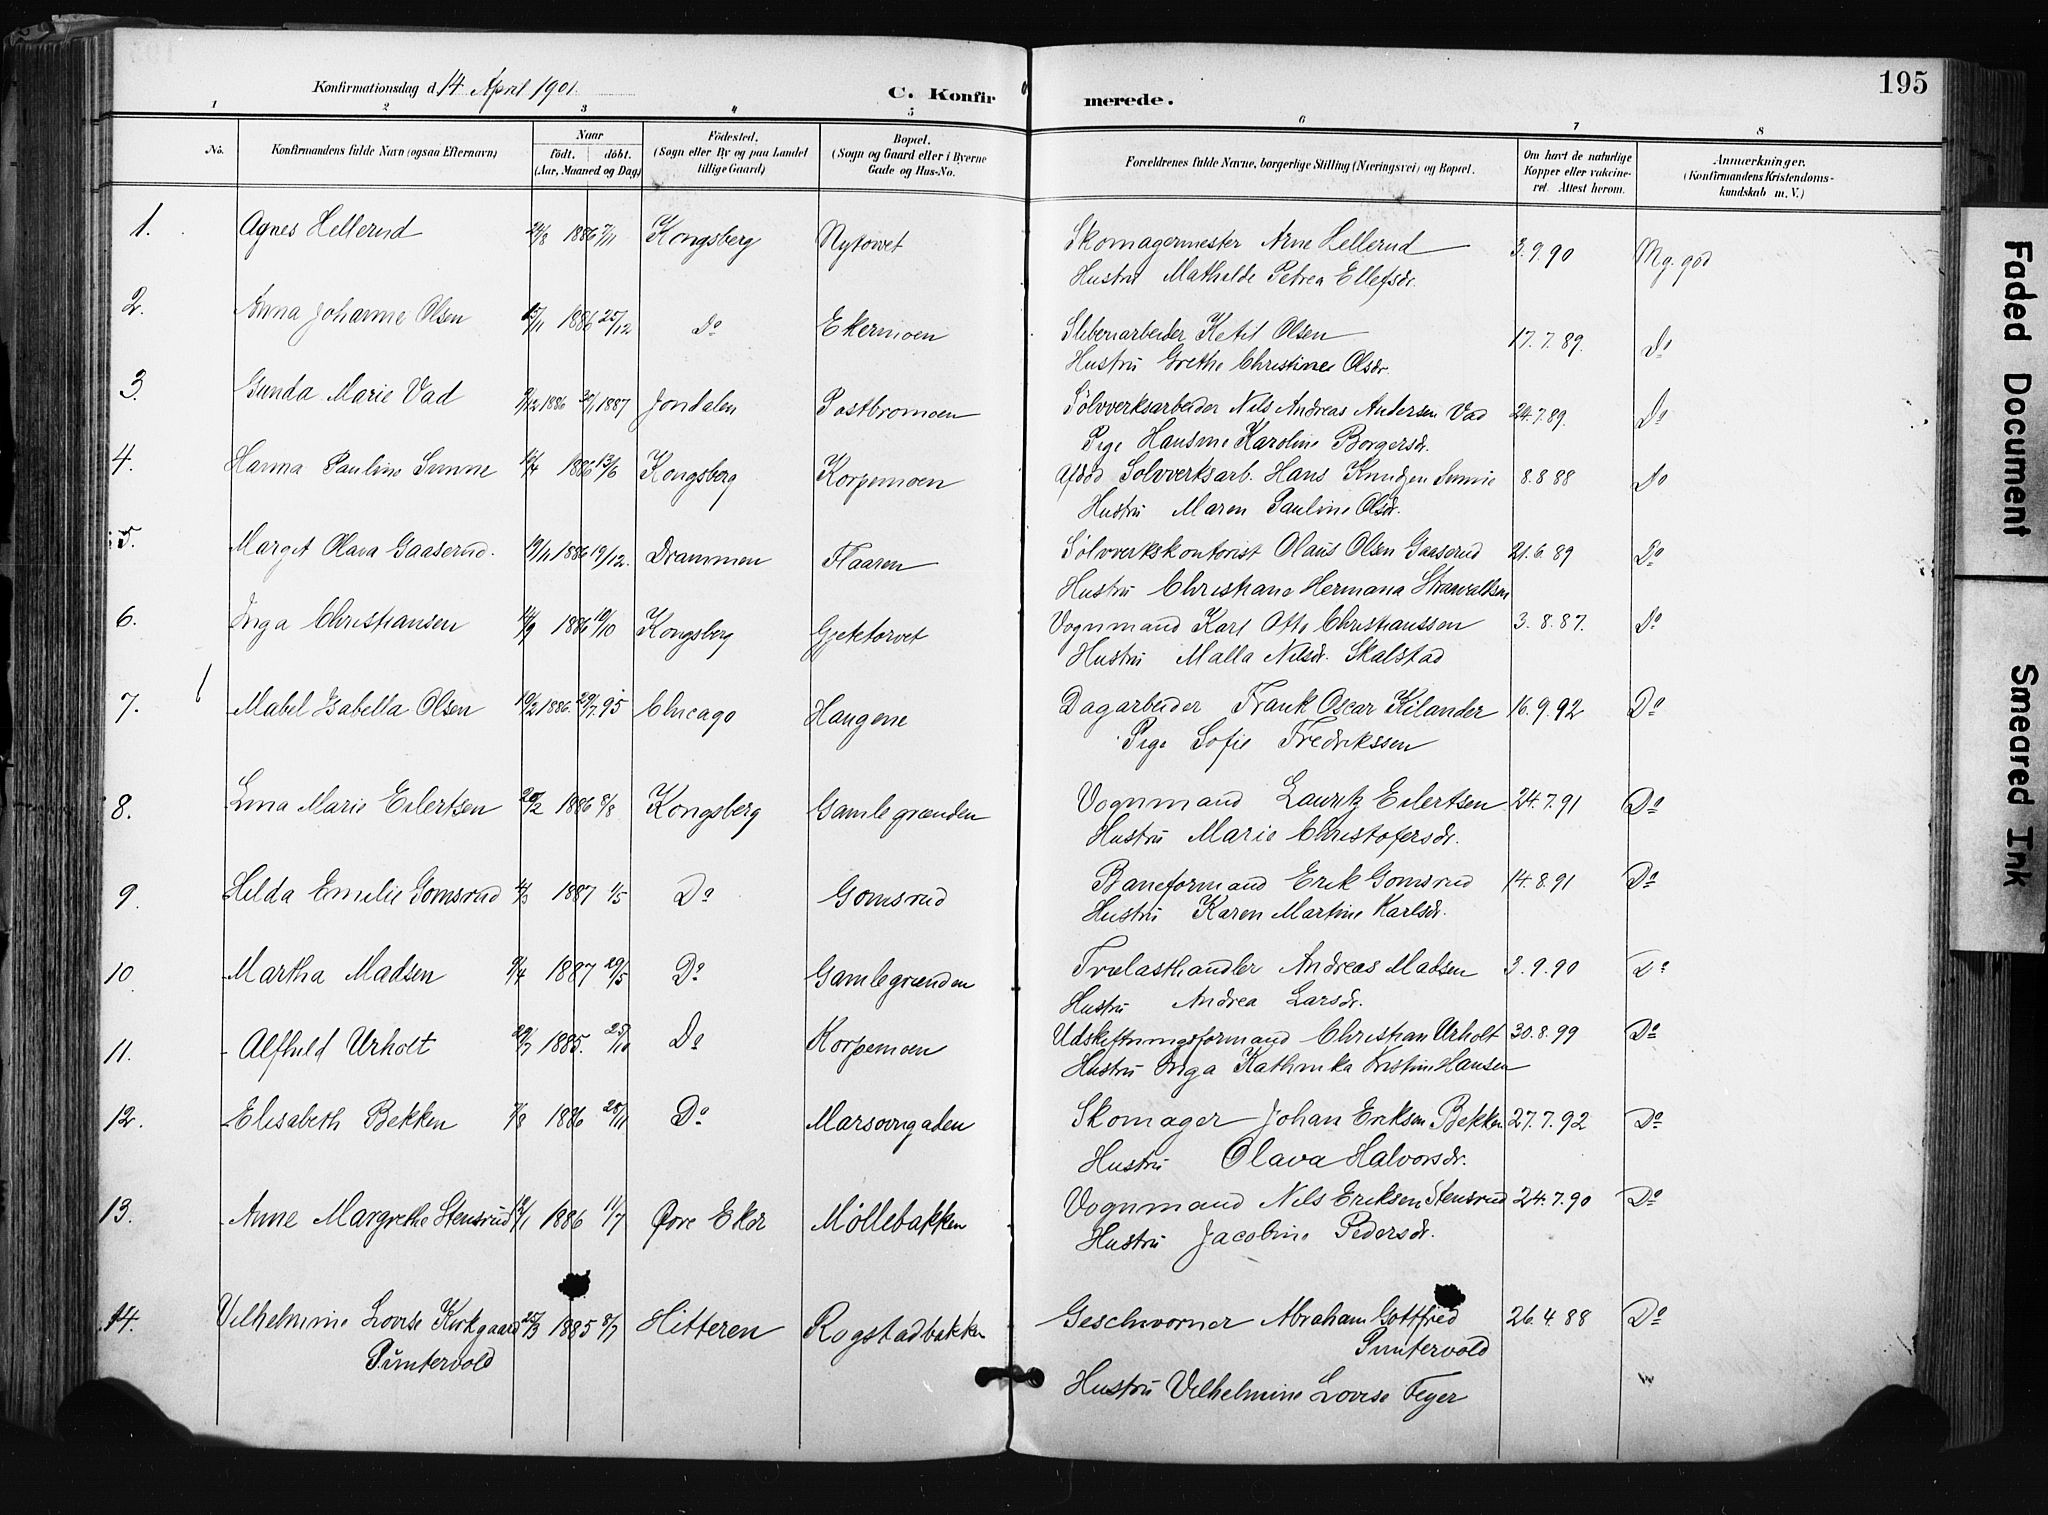 195
Konfirmationsdag d. 14 April 1901.
C. Konfirmerede.
1 2 3 4 5 6 7 8
No.
Konfirmandens fulde Navn (ogsaa Efternavn)
Naar
født. døbt.
(Aar, Maaned og Dag)
Fødested.
(Sogn eller By og paa Landet
tillige Gaard)
Bopæl.
(Sogn og Gaard eller i Byerne
Gade og Hus-No.
Forældrenes fulde Navne, borgerlige Stilling (Næringsvei) og Bopæl.
Om havt de naturlige
Kopper eller vakcine-
ret. Attest herom.
Anmærkninger.
(Konfirmandens Kristendoms-
kundskab m. V.)
1. Agnes Hellerud 24/8 1886 7/11 Kongsberg Nytorvet Skomagermester Arne Hellerud 3.9.90 Mg. god
Hustru Mathilde Petrea Ellefsdr.
2. Anna Johanne Olsen 15/11 1886 25/12 Do Ekermoen Sliberiarbeider Ketil Olsen 17.7.89. Do
Hustru Grethe Christine Olsdr.
3. Gunda Marie Vad 9/12 1886 30/1 1887 Jondalen Postbromoen Sølvverksarbeider Nils Andreas Andersen Vad 24.7.89. Do
Pige Hansine Karoline Borgersdr.
4. Hanna Pauline Sunne 12/4 1886 13/6 Kongsberg Korpemoen Afdød Sølvverksarb. Hans Knudsen Sunne 8.8 88 Do
Hustru Maren Pauline Olsdr.
5. Marget Olava Gaaserud. 9/11 1886 19/12. Drammen Flaaren Sølvverkskontorist Olaus Olsen Gaaserud 21.6.89 Do
Hustru Christiane Hermana
6. Inga Christiansen 14/9 1886 10/10 Kongsberg Gjetetorvet Vognmand Karl Otto Christianssen 3.8.87. Do
Hustru Malla Nilsdr. Skalstad
7. Mabel Isabella Olsen 10/2 1886. 29/7 95 Chicago Haugene Dagarbeider Frank Oscar Kilander 16.9.92 Do
Pige Sofie Fredrikssen
8. Lina Marie Eilertsen 20/2 1886 8/8 Kongsberg Gamlegrænden Vognmand Lauritz Eilertsen 24.7.91 Do
Hustru Marie Christofersdr.
9. Hilda Emilie Gomsrud 14/3 1887 1/5 Do Gomsrud Baneformand Erik Gomsrud 14.8.91 Do
Hustru Karen Martine Karlsdr.
10. Martha Madsen 9/4 1887 29/5 Do Gamlegrænden Trælasthandler Andreas Madsen 3.9.90 Do
Hustru Andrea Larsdr.
11. Alfhild Urholt 29/7 1885. 25/10 Do Korpemoen Udskiftningsformand Christian Urholt 30.8.99 Do
Hustru Inga Kathinka Kristine Hansen
12. Elisabeth Bekken 7/8 1886 28/11 Do Marsovngaden Skomager Johan Eriksen Bekken 27.7.92 Do
Hustru Olava Halvorsdr.
13. Anne Margrethe Stensrud 12/1 1886 11/7 Øvre Eker Møllebakken Vognmand Nils Eriksen Stensrud 24.7.90 Do
Hustru Jacobine Pedersdr.
14. Vilhelmine Lovise Kirkgaard 25/3 1885 8/7 Hitteren Rogstadbakken Geschworner Abraham Gottfred 26.4.88 Do
Puntervold Puntervold
Hustru Vilhelmine Lovise Feyer
Faded Document
Smeared Ink